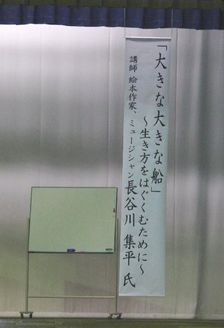 「大きな大きな船」
～生き方をはぐくむために～
講師 絵本作家、ミュージシャン 長谷川 集平 氏